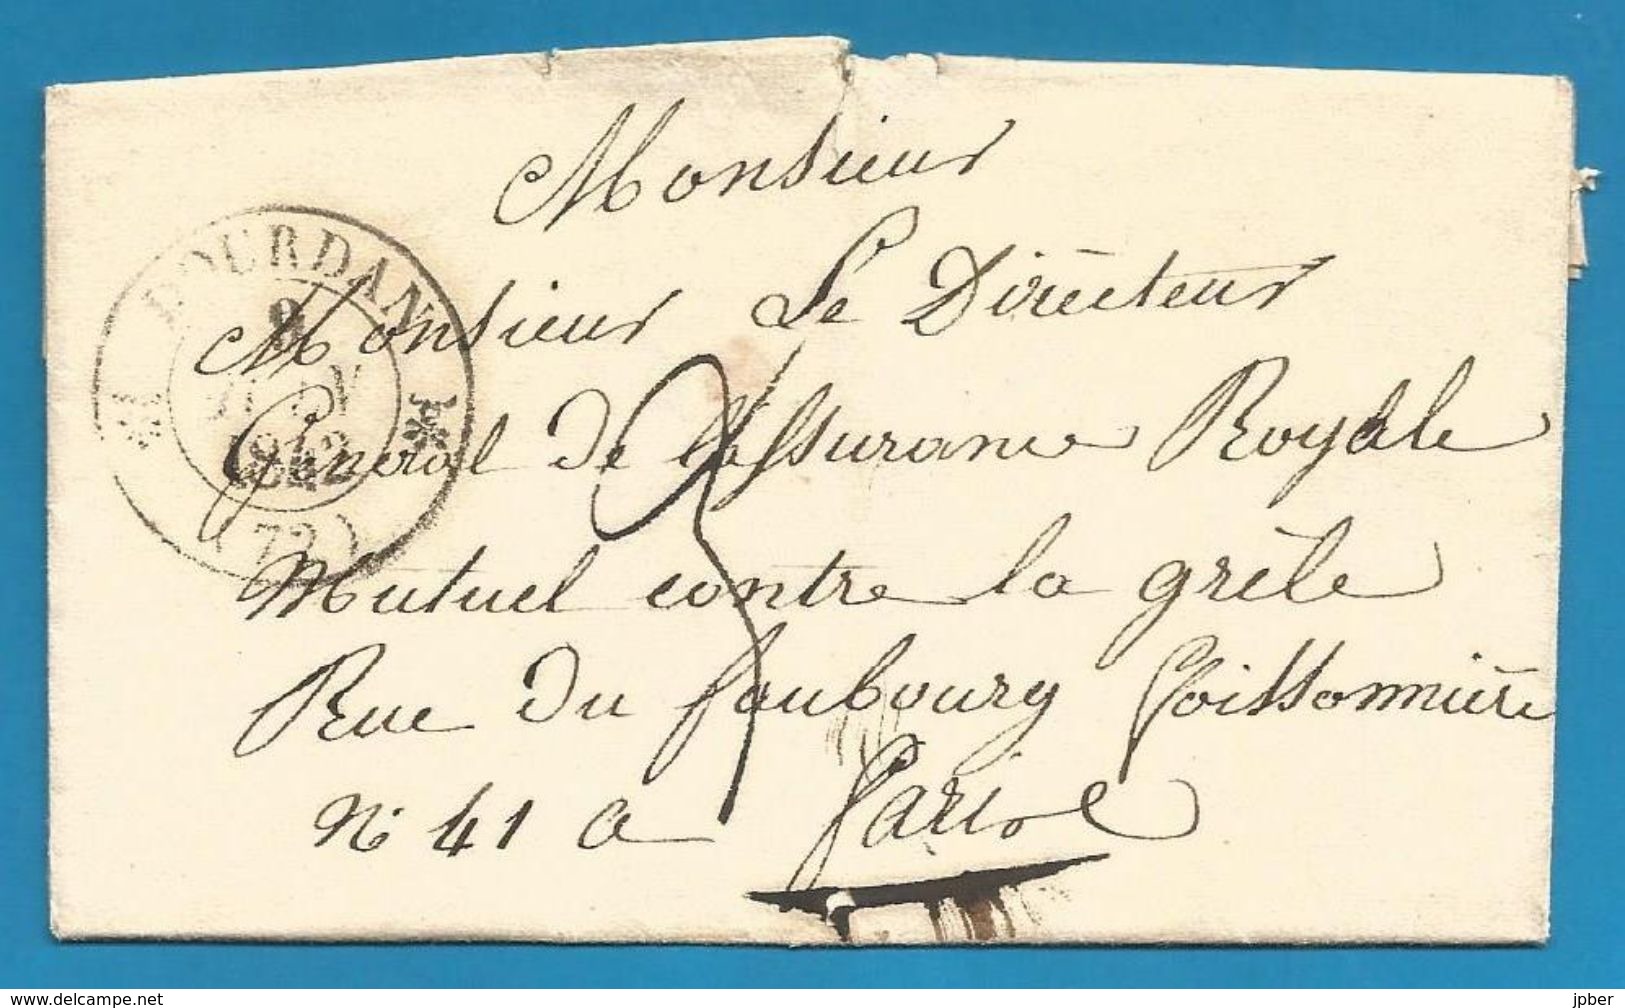 Monsieur
Monsieur Le Directeur
Général De l'assurance Royale
Mutuel contre la grêle
Rue Du faubourg Poissonnière
N. 41 a Paris
3
DOURDAN
9
1842
(72)
www.delcampe.net
jpber